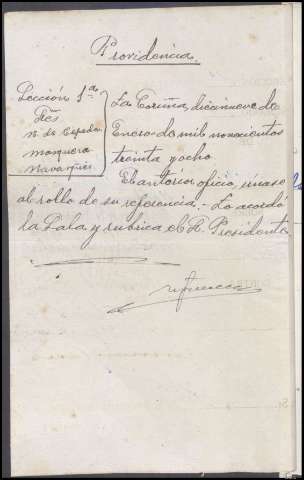 Providencia.
Sección 1ª
Sres
N. de Cepeda
Mosquera
Navarques
La Coruña, diecinueve de
Enero de mil novecientos
treinta y ocho
El anterior oficio, únase
al rollo de su referencia.- Lo acordó
la Sala y rubrica el S. Presidente.